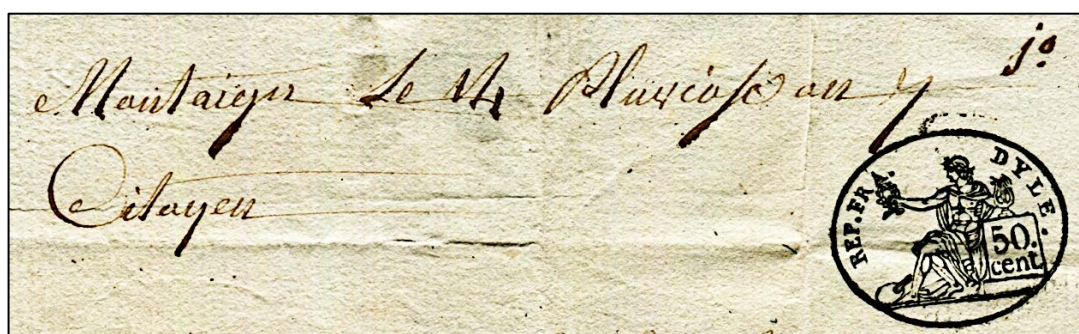 Montaigu Le 14 Pluviose an 7
Citoyen
REP. FRA. DYLE.
50.
cent